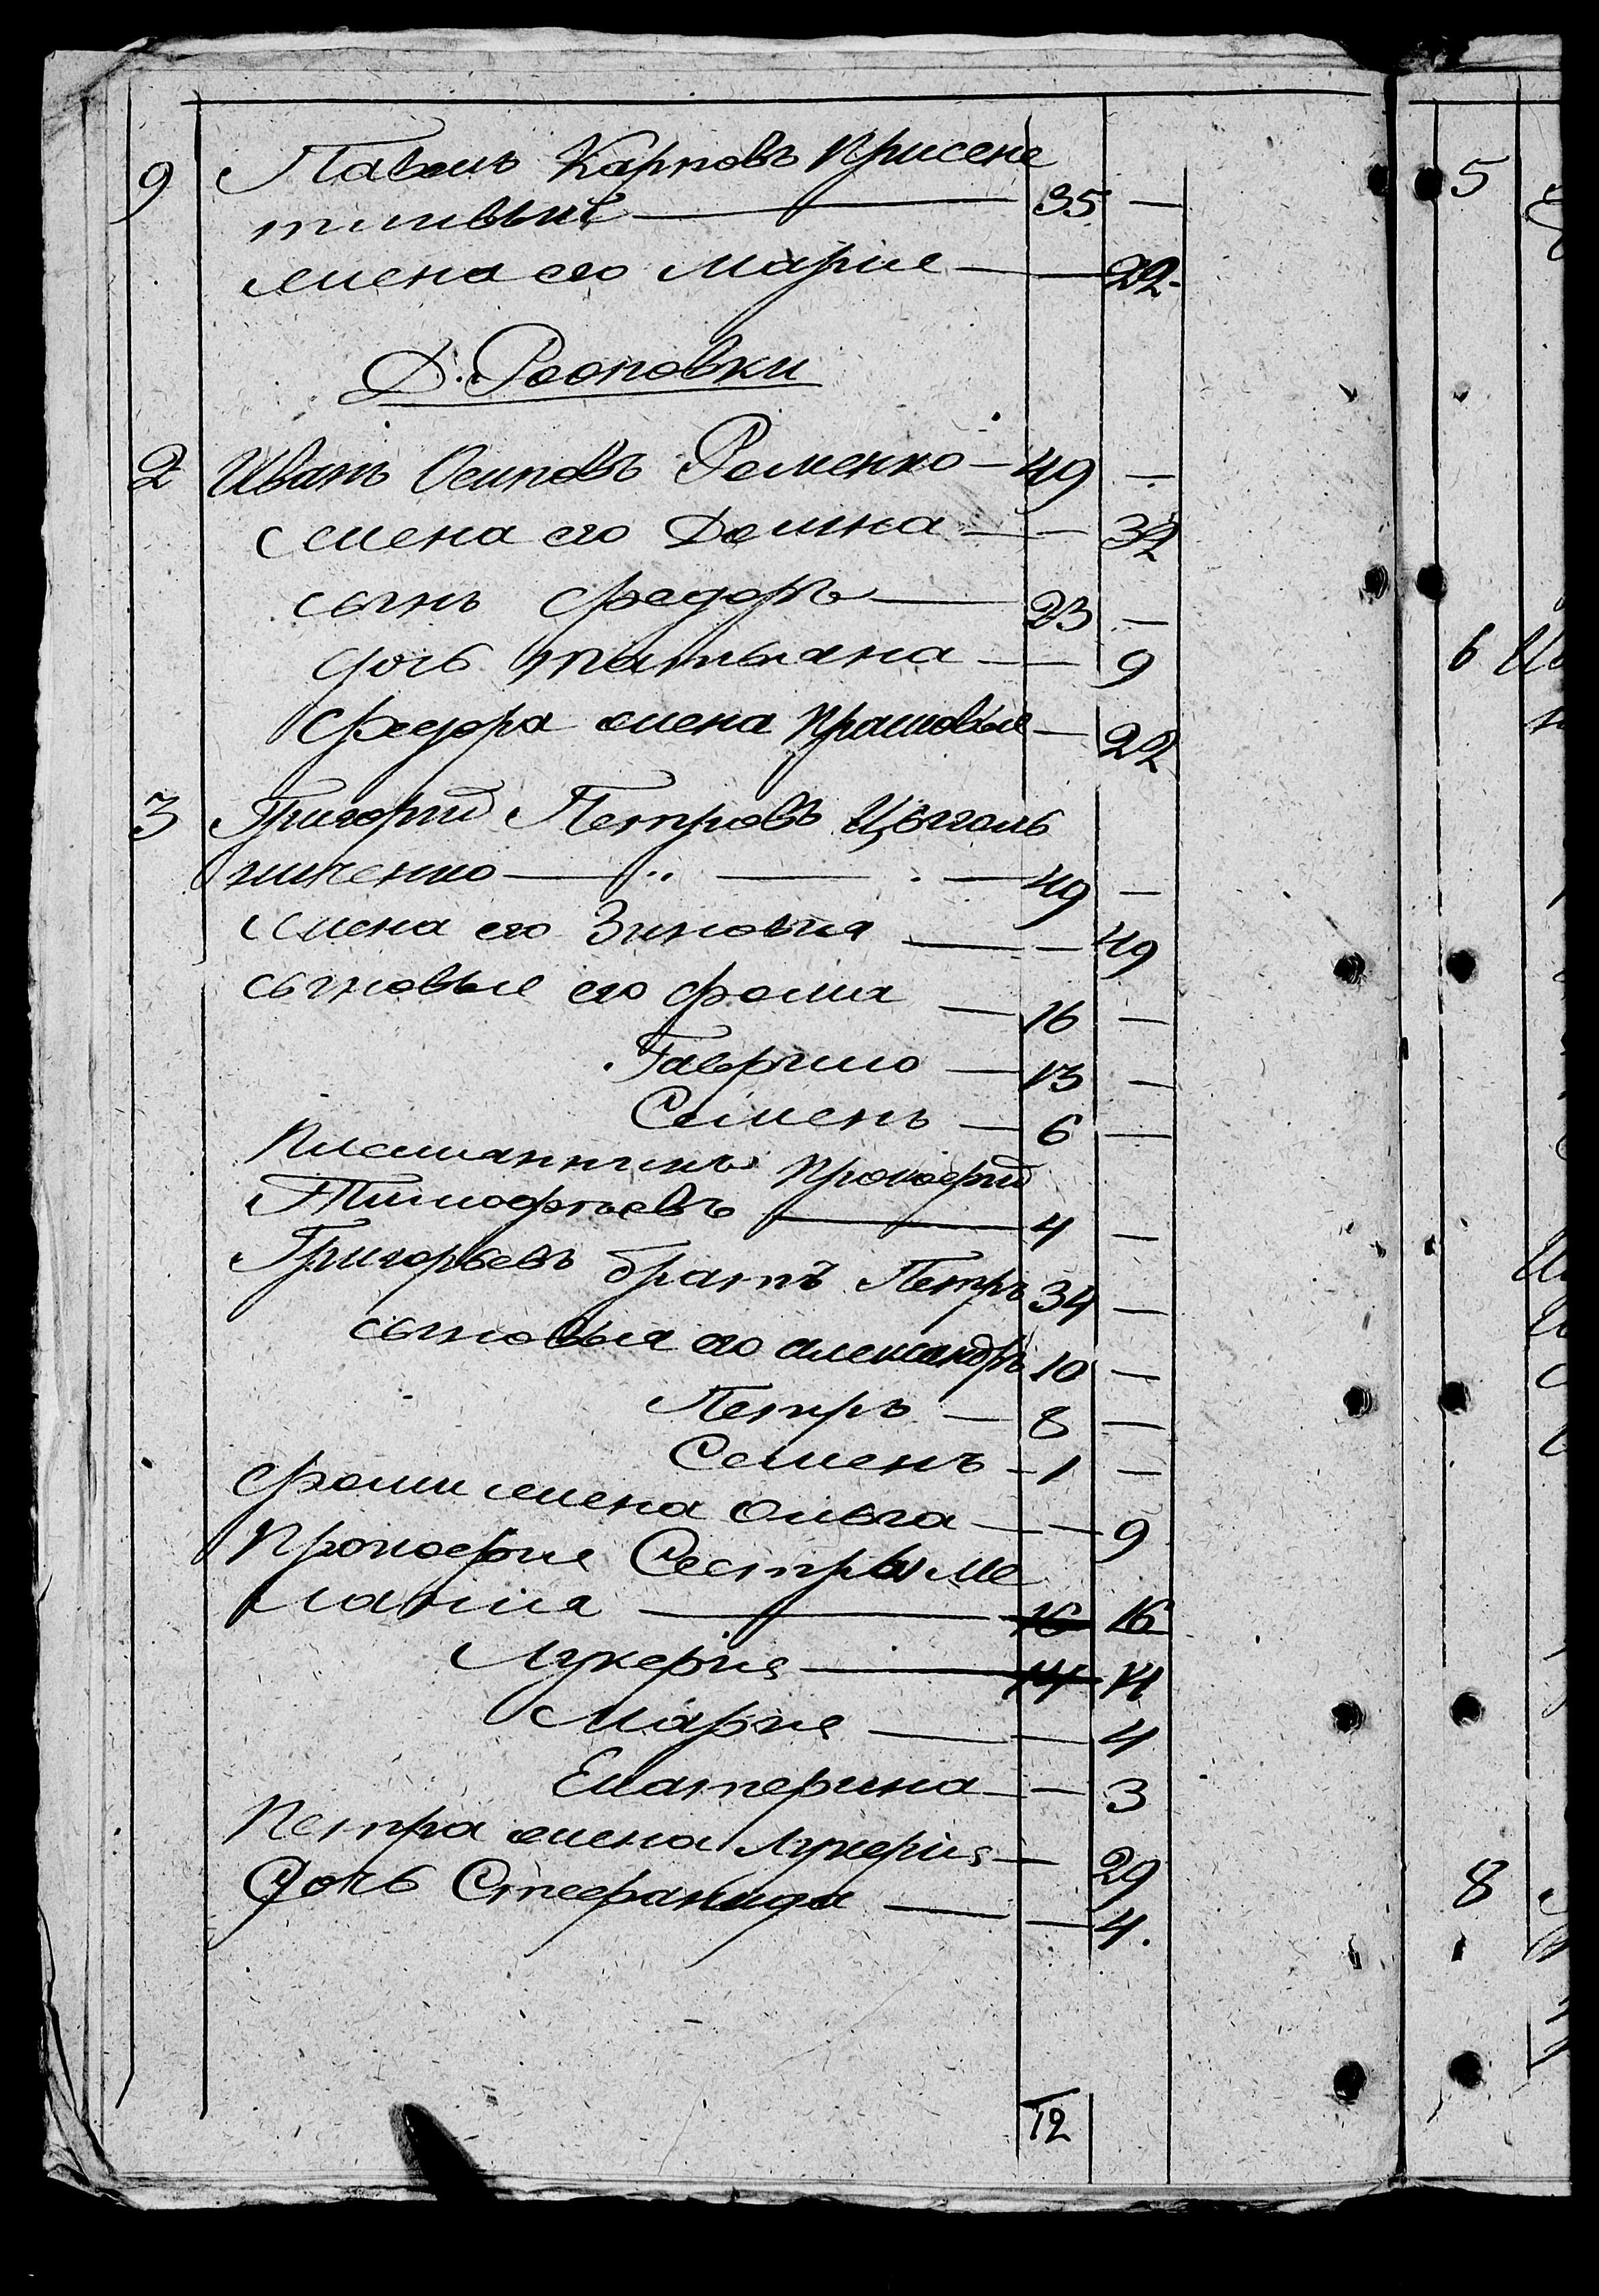 9 Павелъ Карповъ Присене
тливый — 35 —
жена его Марие — — 22.
Д. Рооповки
2 Иванъ Осиповъ Роменко — 49 —
жена его Домна — — 32
сынъ Федоръ — 23 —
дочь Татьяна — — 9
Федора жена Прасковье — — 22
3 Григорий Петровъ Цыгань
ниченко — 49 —
жена его Зиновия — — 49
сыновье его Фома — 16 —
Гаврило — 13 —
Семенъ — 6 —
Племянникъ Прокофий
Тимофеевъ — 4 —
Григорьевъ братъ Петръ 34 —
сыновья его александръ 10 —
Петръ — 8 —
Семенъ — 1 —
Фоми жена Ольга — — 9
Прокофие Сестры Ме
лания — 16 16
Лукерия — 14 14
Мария — — 4
Екатерина — — 3
Петра жена Лукерия — 29
Дочь Стефанида — — 4.
12
5
6
8